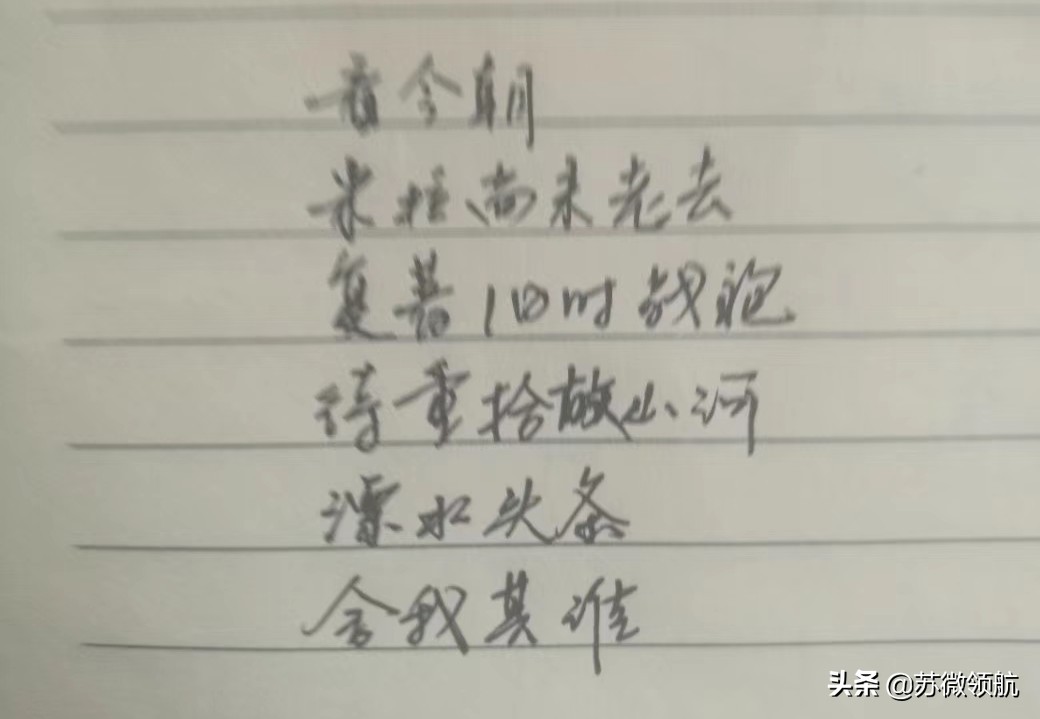 看今朝
米拉尚未老去
复着旧时战袍
待重拾故山河
溧水头条
舍我其谁
头条 @苏微领航